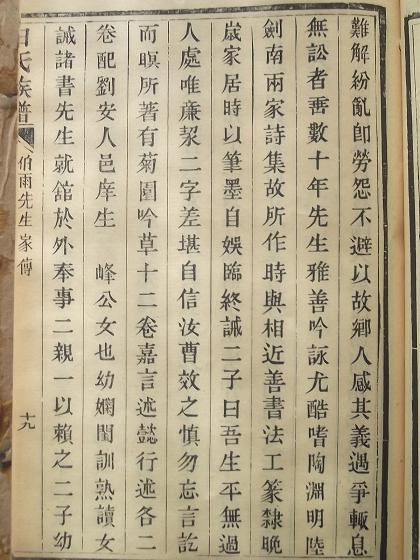 難解紛亂卽勞怨不避以故鄉人感其義遇爭輒息
無訟者垂數十年先生雅善吟詠尤酷嗜陶淵明陸
劍南兩家詩集故所作時與相近善書法工篆隸晚
歲家居時以筆墨自娛臨終誡二子曰吾生平無過
人處唯廉潔二字差堪自信汝曹效之慎勿忘言訖
而暝所著有菊園吟草十二卷嘉言述懿行述各二
卷配劉安人邑庠生 峰公女也幼嫻閨訓熟讀女
誡諸書先生就舘於外奉事二親一以賴之二子幼
氏族譜
伯雨先生家傳
十九